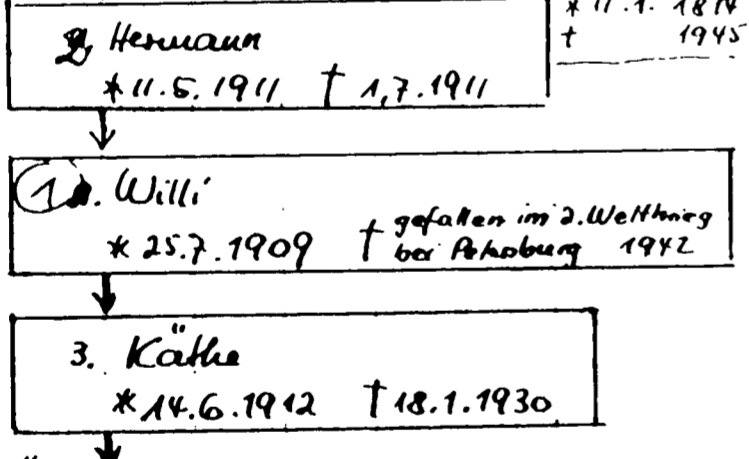 2. Hermann
* 11.5.1911 † 1,7.1911
* 11.1.
† 1945
1. Willi
* 25.7.1909 † gefallen im 2. Weltkrieg
bei Petersburg 1942
3. Käthe
* 14.6.1912 † 18.1.1930